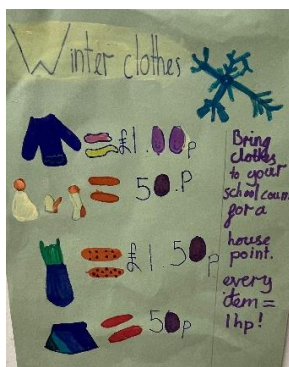 Winter clothes
= £1.00p
= 50.p
= £1.50p
= 50p
Bring
clothes
to your
school coun
for a
house
point.
every
item =
1hp!